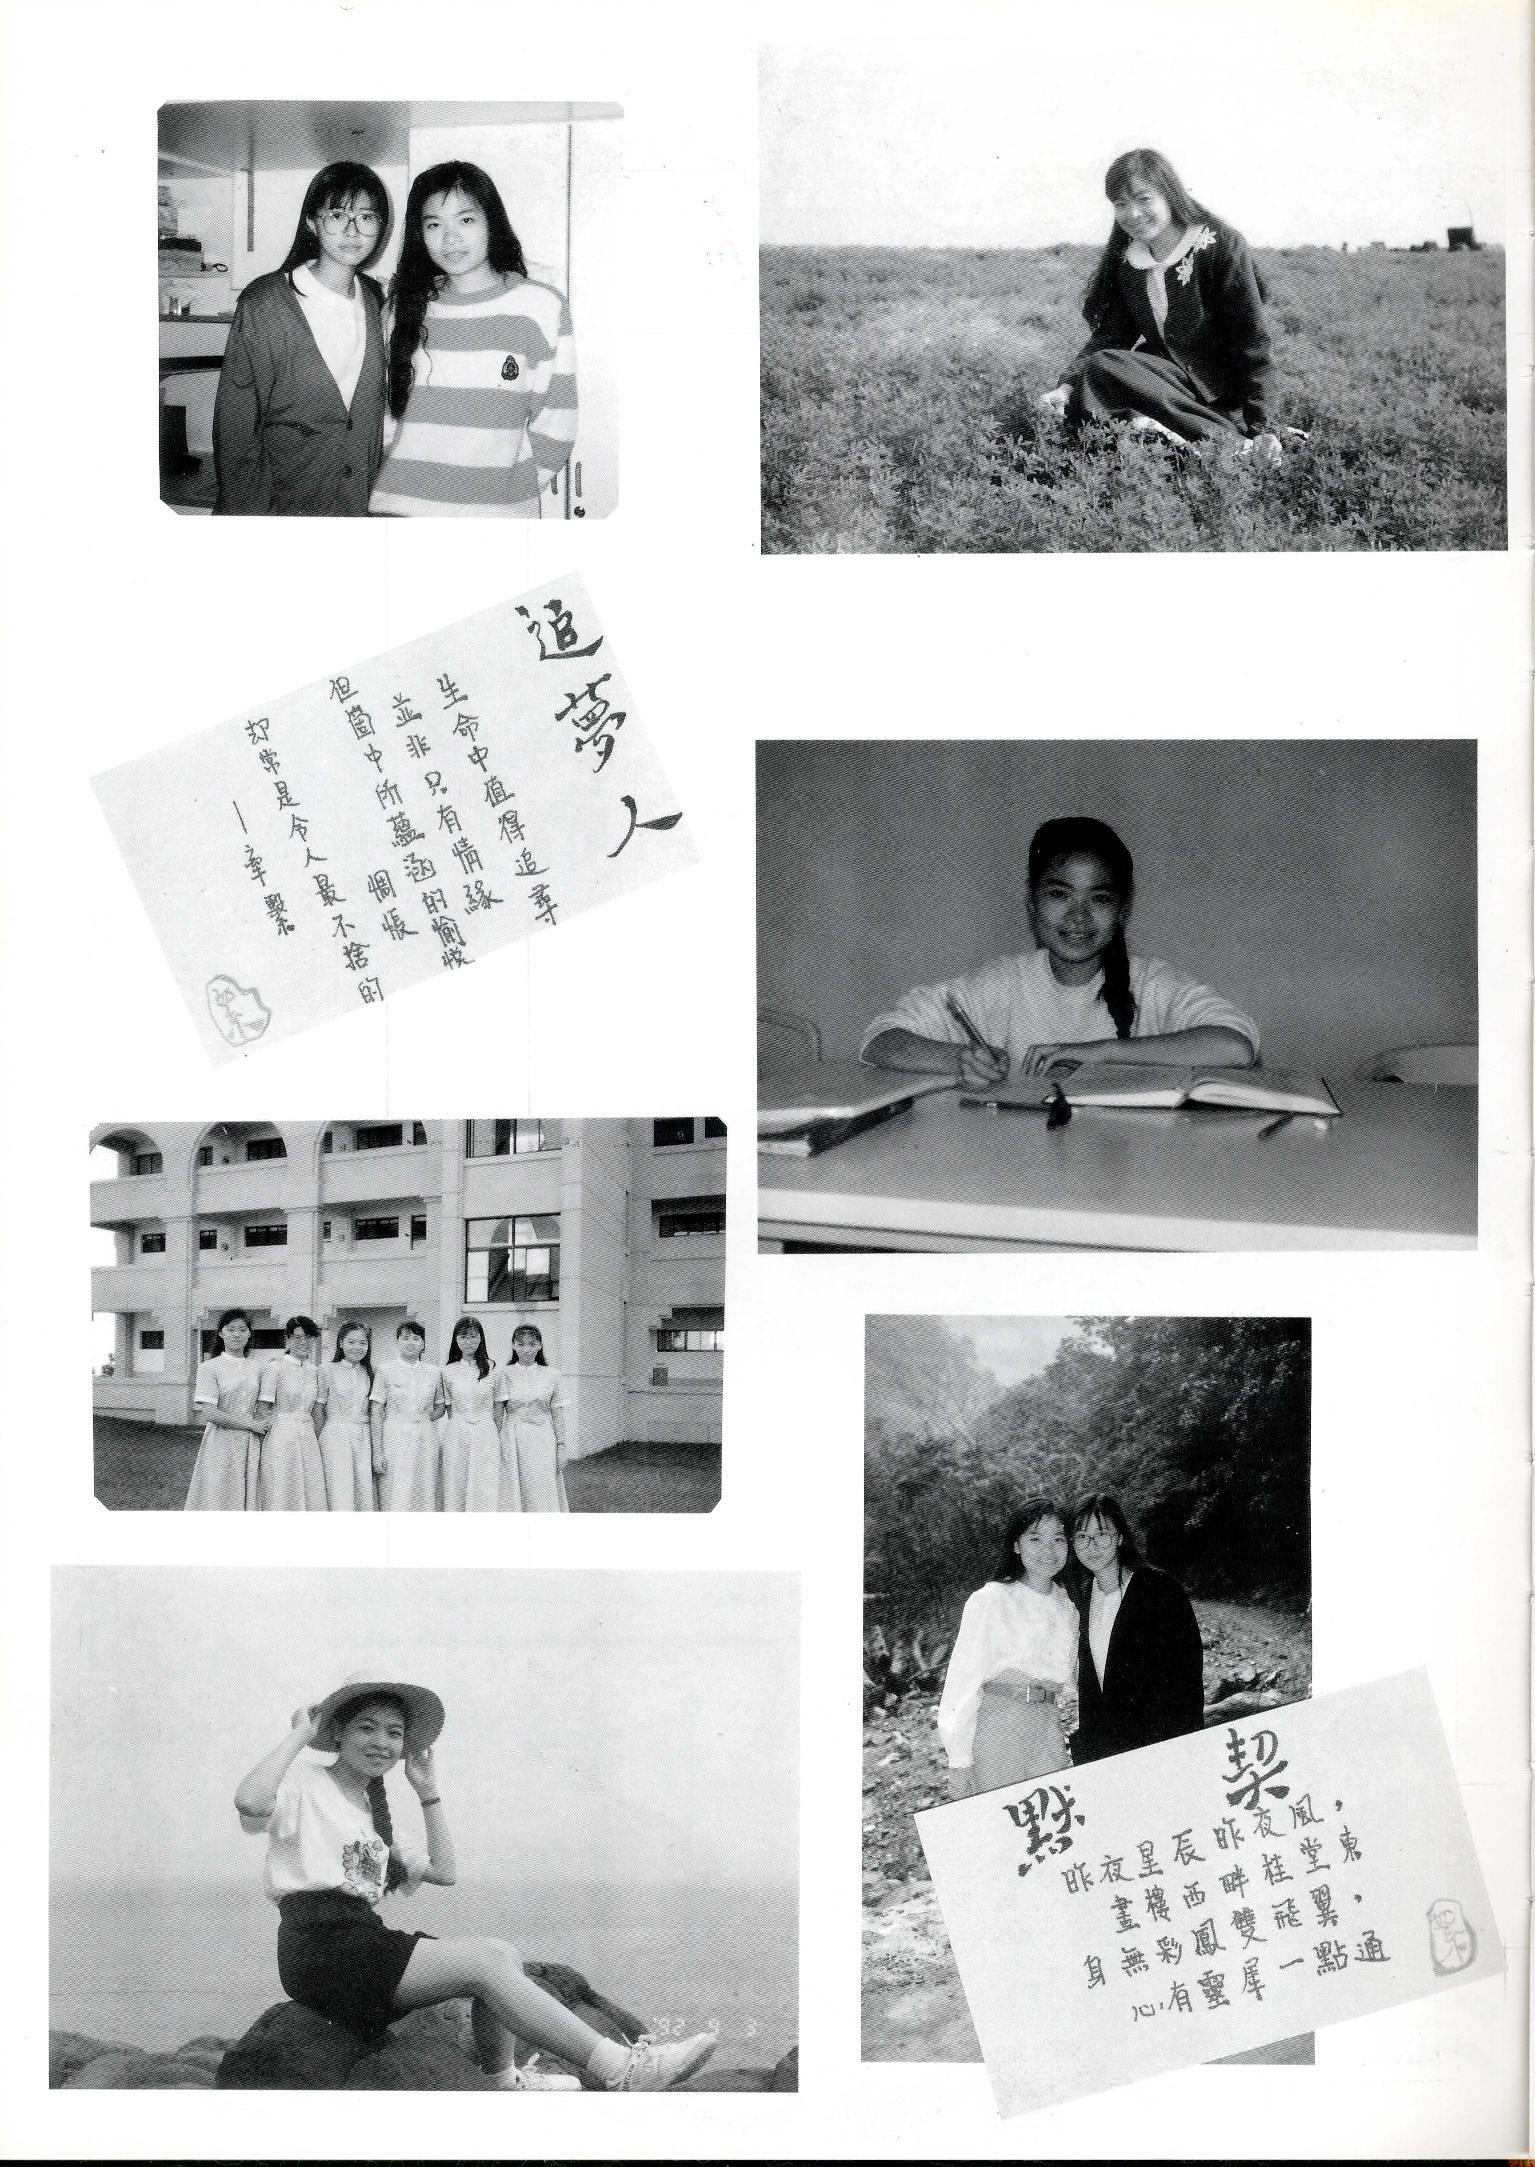 追夢人
生命中值得追尋
並非只有情緣
但箇中所蘊涵的愉悅
惆悵
却常是令人最不捨的
—牽繫
'92 9 3
默契
昨夜星辰昨夜風，
畫樓西畔桂堂東
身無彩鳳雙飛翼，
心有靈犀一點通